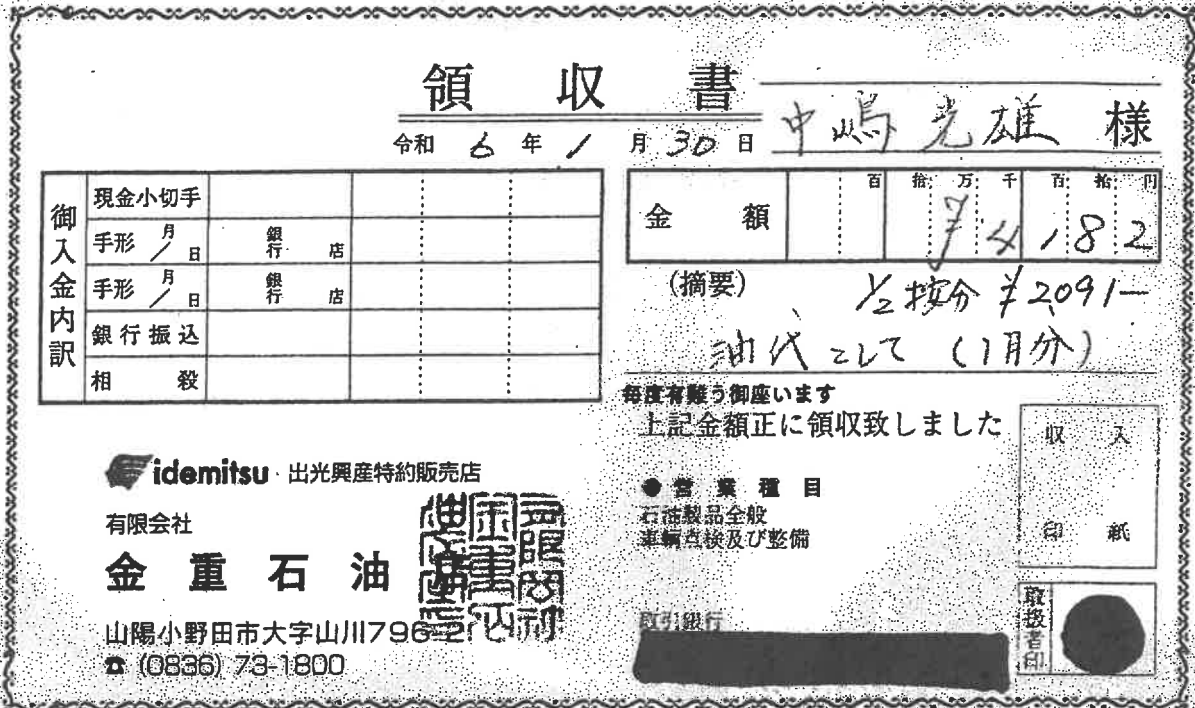 領収書
令和6年1月30日
中嶋光雄 様
御入金内訳
現金小切手
手形 月/日 銀行 店
手形 月/日 銀行 店
銀行振込
相殺
金額
百拾万千百拾円
¥4,182
(摘要)
1/2按分 ¥2,091—
油代として (1月分)
毎度有難う御座います
上記金額正に領収致しました
収入印紙
idemitsu・出光興産特約販売店
有限会社
金重石油店
山陽小野田市大字山川796-2
☎ (0836) 73-1800
●営業種目
石油製品全般
車輌点検及び整備
取引銀行
取扱者印